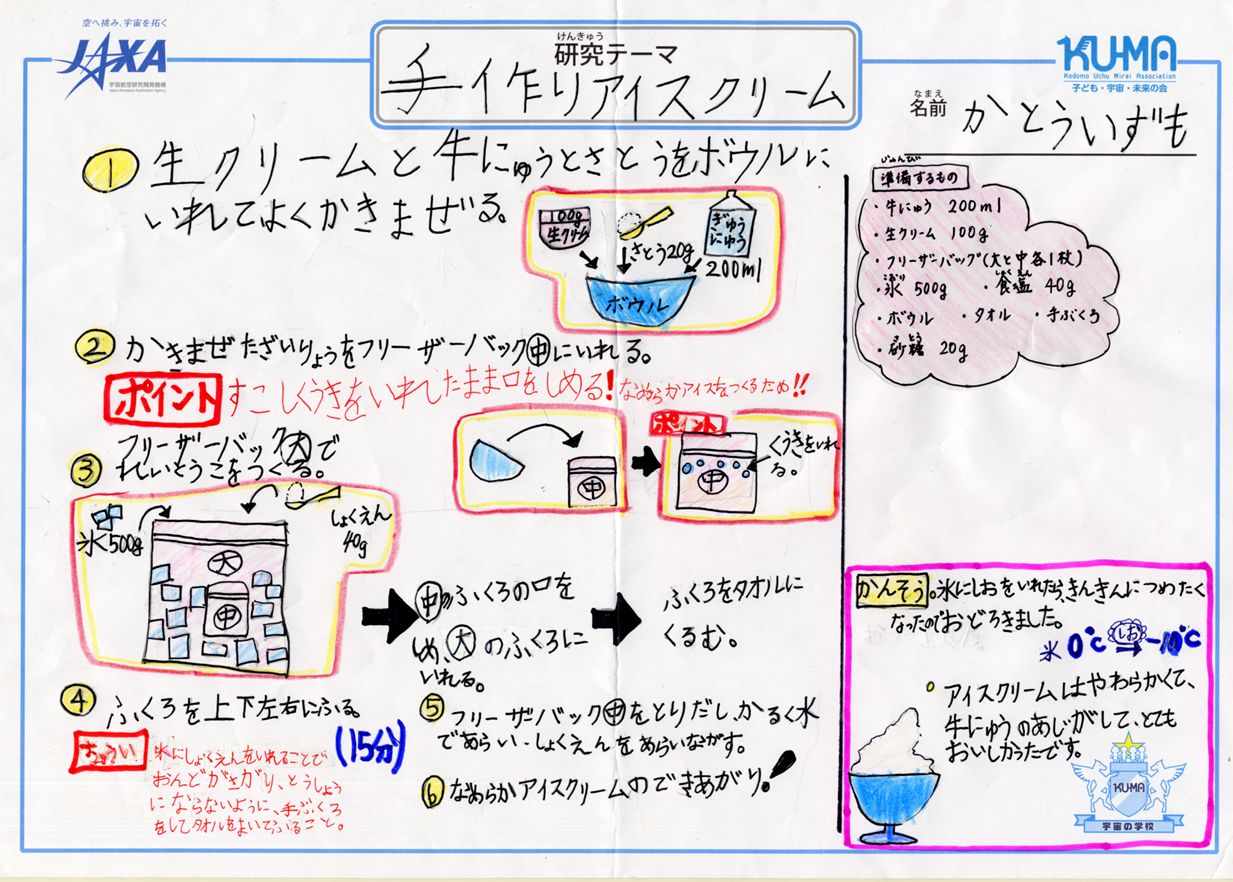 空へ挑み、宇宙を拓く
JAXA
宇宙航空研究開発機構
Japan Aerospace Exploration Agency
けんきゅう
研究テーマ
手作りアイスクリーム
KU-MA
Kodomo Uchu Mirai Association
子ども・宇宙・未来の会
なまえ
名前 かとういずも
① 生クリームと牛にゅうとさとうをボウルに
いれてよくかきまぜる。
100g
生クリーム
さとう20g
ぎゅう
にゅう
200ml
ボウル
② かきまぜたざいりょうをフリーザーバック㊥にいれる。
ポイント すこしくうきをいれしたまま口をしめる! なめらかアイスをつくるため!!
中
ポイント
中
くうきをいれ
る。
③ フリーザーバック大で
れいとうこをつくる。
氷500g
しょくえん
40g
大
中
㊥のふくろの口を
しめ、大のふくろに
いれる。
ふくろをタオルに
くるむ。
④ ふくろを上下左右にふる。
(15分)
ちゅうい
氷にしょくえんをいれることで
おんどがさがり、とうしょう
にならないように、手ぶくろ
をしてタオルをまいてふること。
⑤ フリーザーバック㊥をとりだし、かるく水
であらい、しょくえんをあらいながす。
⑥ なめらかアイスクリームのできあがり!
じゅんび
準備するもの
・牛にゅう 200ml
・生クリーム 100g
・フリーザーバッグ(大と中各1枚)
こおり しょくえん
・氷 500g ・食塩 40g
・ボウル ・タオル ・手ぶくろ
さとう
・砂糖 20g
かんそう 。氷にしおをいれたら、きんきんにつめたく
なったのでおどろきました。
氷 0℃ しお -10℃
。アイスクリームはやわらかくて、
牛にゅうのあじがして、とても
おいしかったです。
KUMA
宇宙の学校